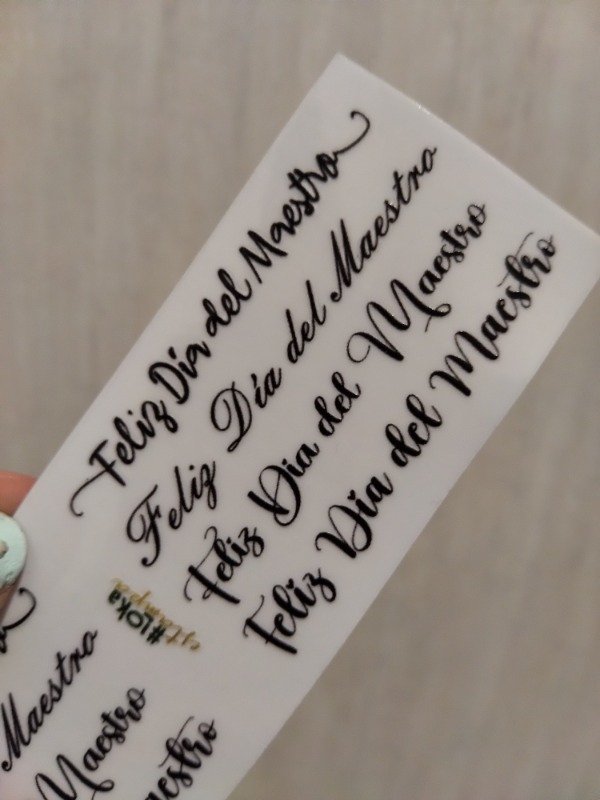 Feliz Día del Maestro
Feliz Día del Maestro
Feliz Dia del Maestro
Feliz Dia del Maestro
#LOKA
estampa
Maestro
Maestro